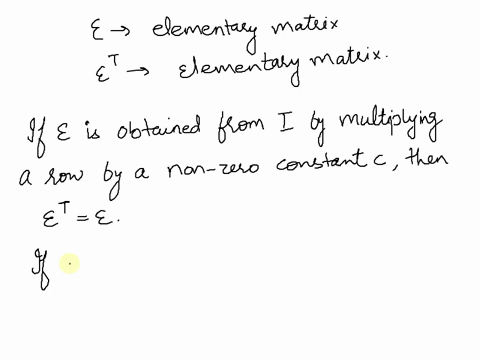 ε → elementary matrix
ε^T → elementary matrix.
If ε is obtained from I by multiplying
a row by a non-zero constant c, then
ε^T = ε.
If